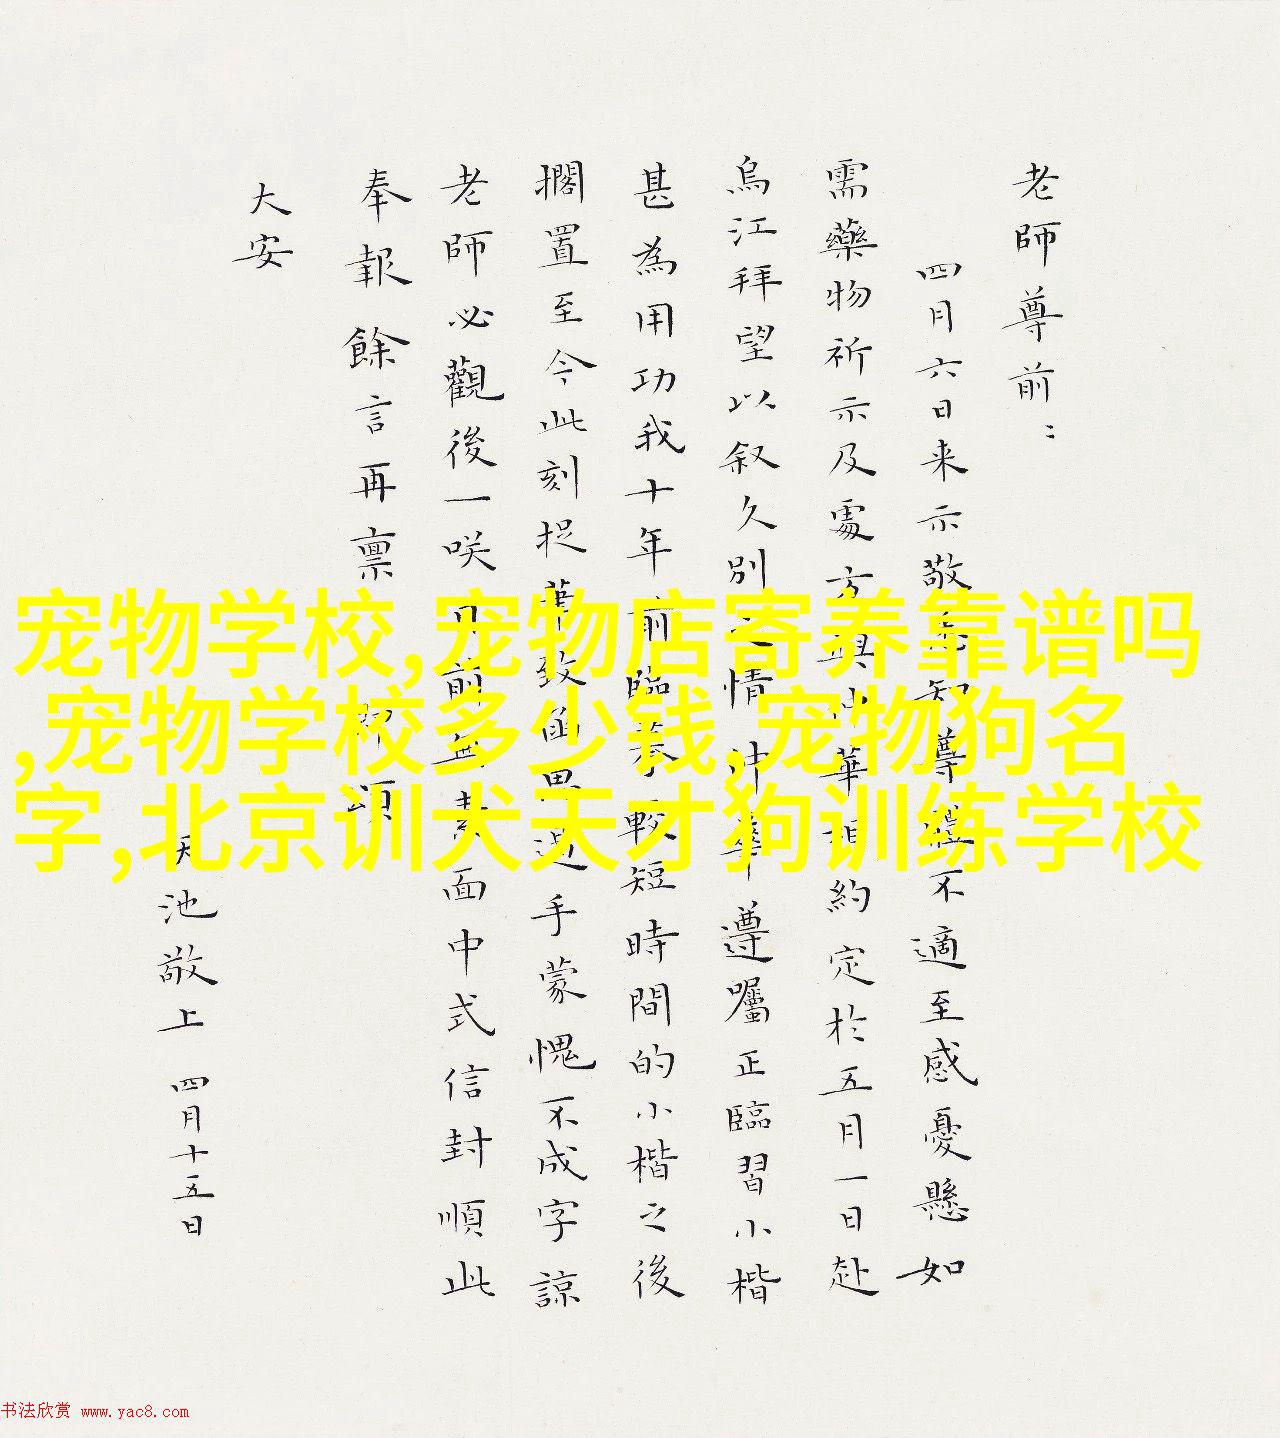 老師尊前：
四月六日来示敬悉知尊體不適至感憂懸如
需藥物祈示及處方與沖華相約定於五月一日赴
烏江拜望以叙久別之情沖華遵囑正臨習小楷
甚為用功我十年前臨摹較短時間的小楷之後
擱置至今此刻捉筆致函思過手蒙愧不成字諒
老師必觀後一咲目前無素面中式信封順此
奉報餘言再禀即頌
大安
天池敬上 四月十五日
宠物学校,宠物店寄养靠谱吗
,宠物学校多少钱,宠物狗名
字,北京训犬天才狗训练学校
书法欣赏 www.yac8.com